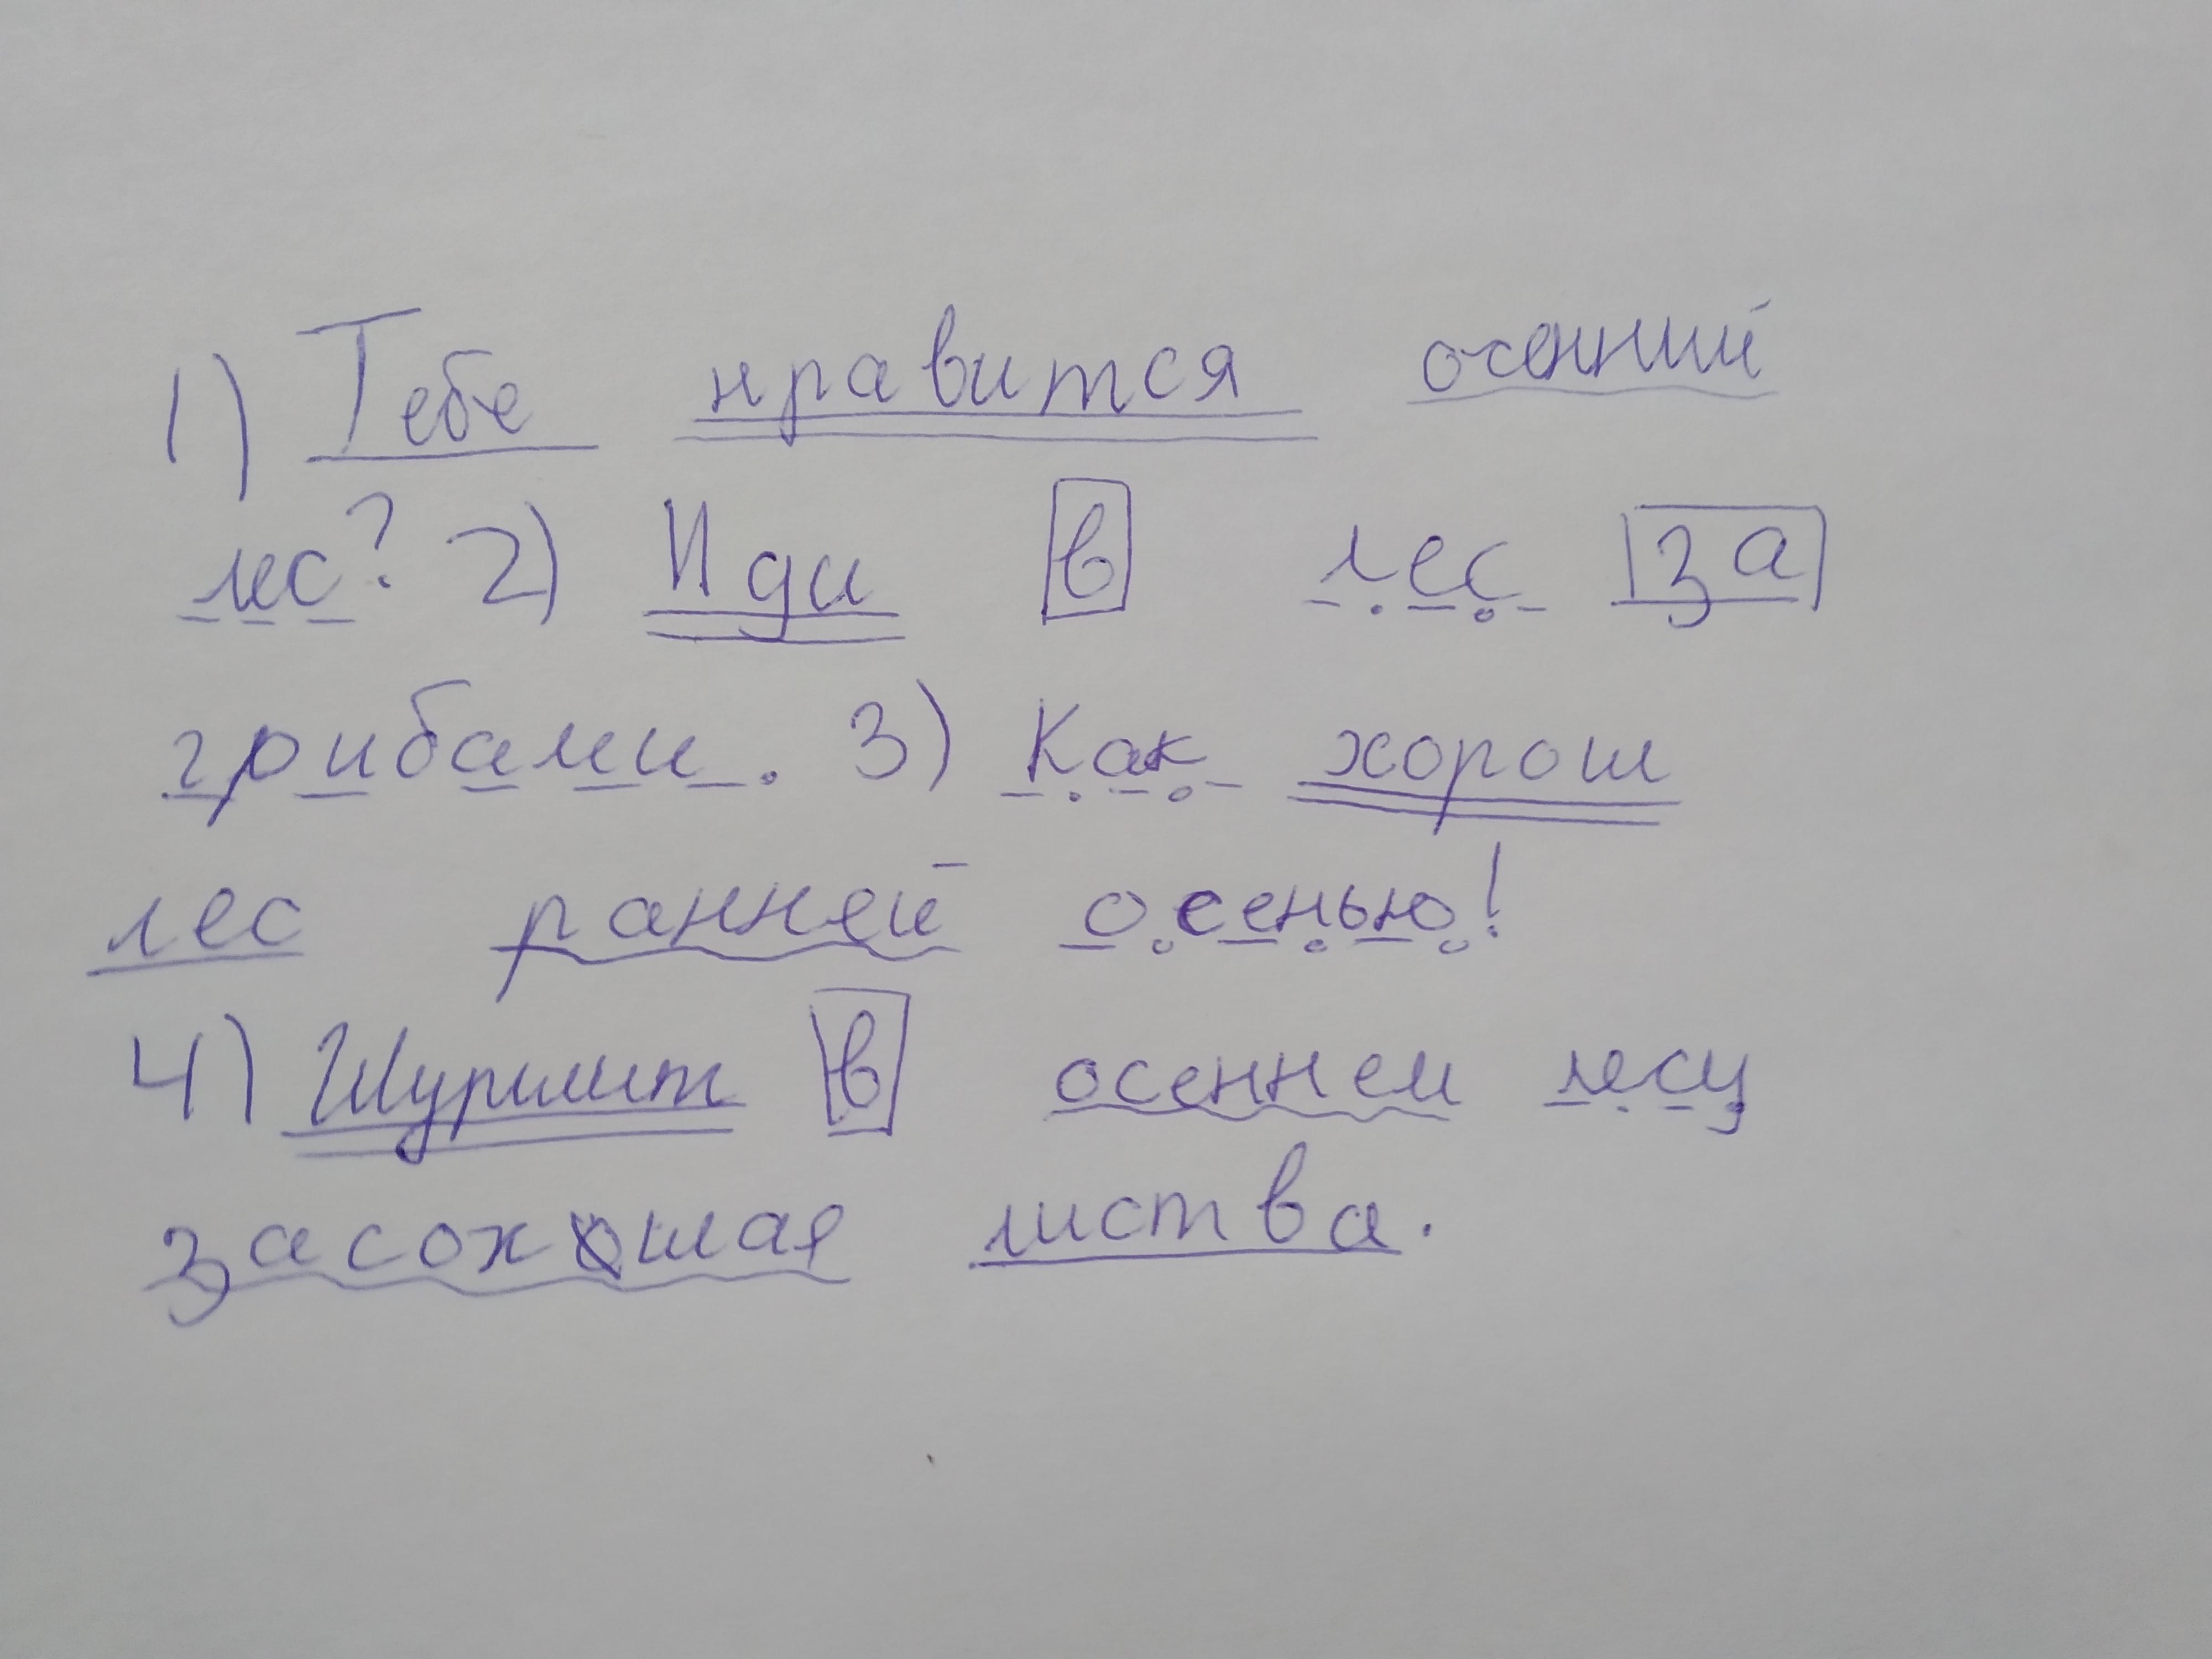 1) Тебе нравится осенний
лес? 2) Иди в лес за
грибами. 3) Как хорош
лес ранней осенью!
4) Шуршит в осеннем лесу
засохшая листва.